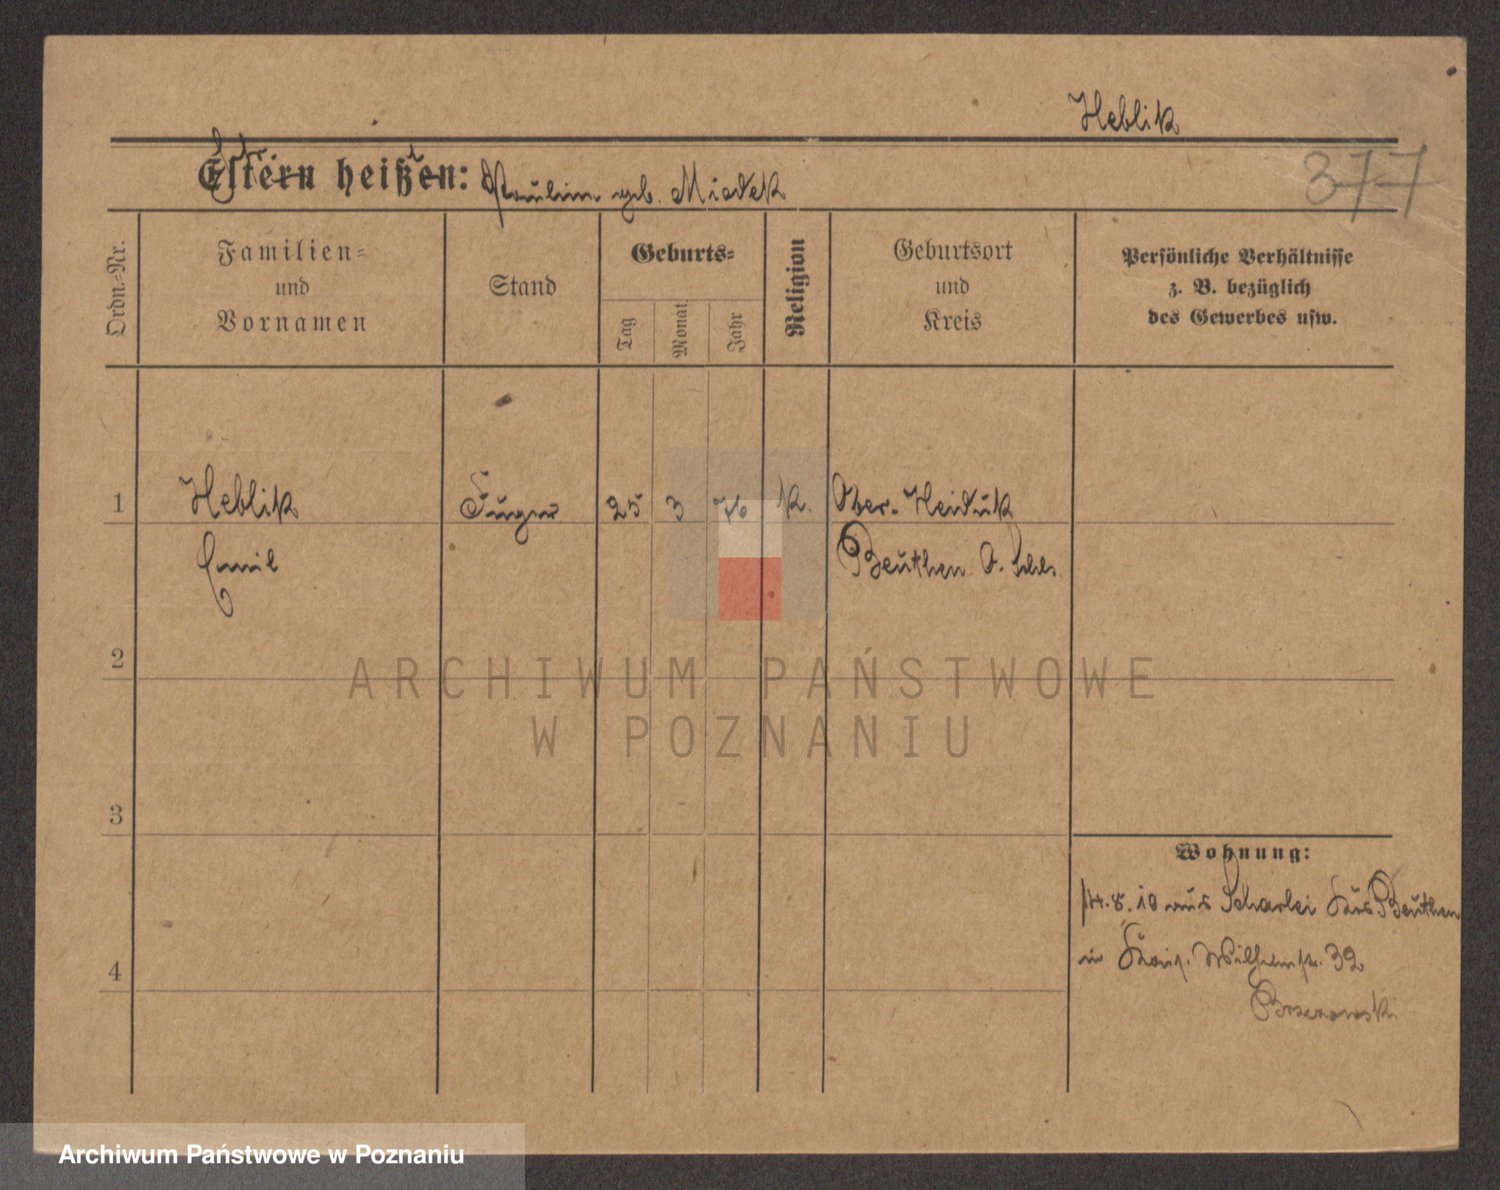 Heblik
377
Eltern heißen: Paulin geb. Miosek
Ordn.-Nr.
Familien-
und
Vornamen
Stand
Geburts-
Tag
Monat
Jahr
Religion
Geburtsort
und
Kreis
Persönliche Verhältnisse
z. B. bezüglich
des Gewerbes usw.
1
Heblik
25 3 76 k. Ober-Heiduk
Emil
Beuthen O. Schls.
2
3
4
Wohnung:
8.10 aus Scharlei Beuthen
in Wilhelmstr. 32
ARCHIWUM PAŃSTWOWE
W POZNANIU
Archiwum Państwowe w Poznaniu